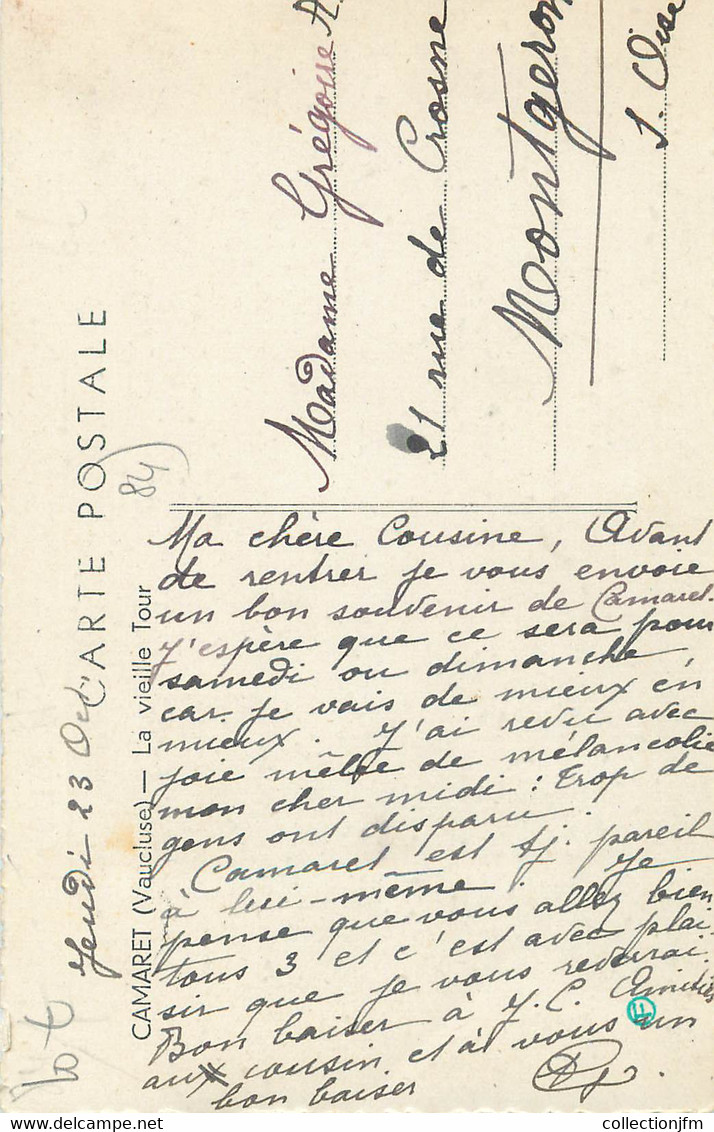 CARTE POSTALE
CAMARET (Vaucluse) — La vieille Tour
84)
Jeudi 23 Oct
Madame Grégoire A.
21 rue de Crosne
Montgeron
S. Oise
Ma chère Cousine, Avant
de rentrer je vous envoie
un bon souvenir de Camaret.
J'espère que ce sera pour
samedi ou dimanche
car je vais de mieux en
mieux. J'ai revu avec
joie mêlée de mélancolie
mon cher midi : Trop de
gens ont disparu.
Camaret est tj. pareil
à lui-même. Je
pense que vous allez bien
tous 3 et c'est avec plai
sir que je vous reverrai.
Bon baiser à J.C. Amitiés
aux cousin et à vous un
bon baiser
collectionjfm